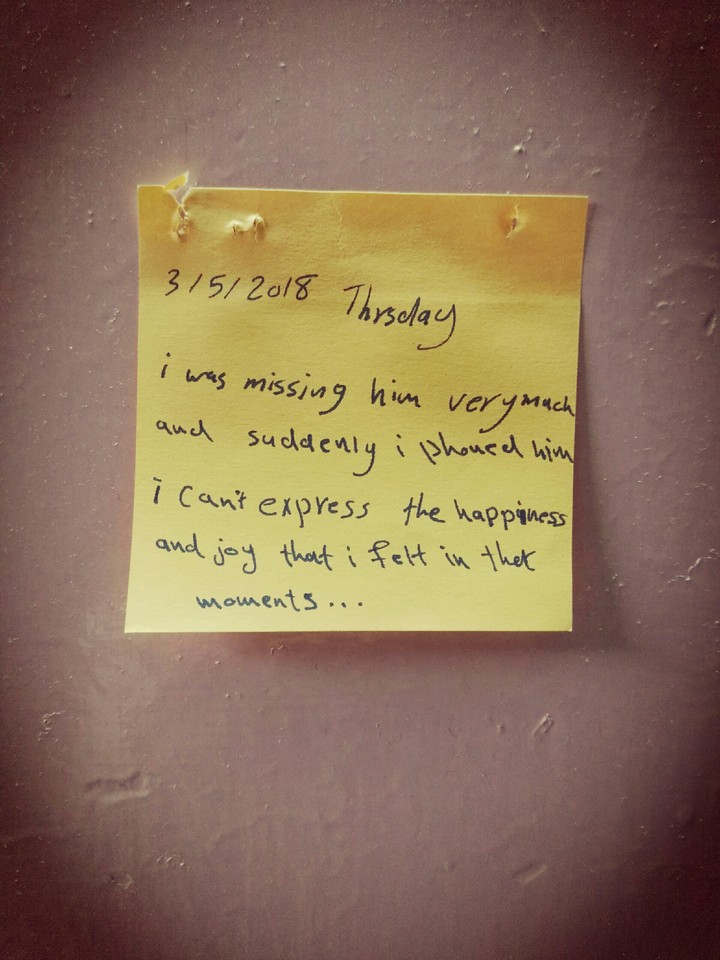 3/5/2018 Thrsday
i was missing him verymuch
and suddenly i phoned him
i can't express the happiness
and joy that i felt in thet
moments...